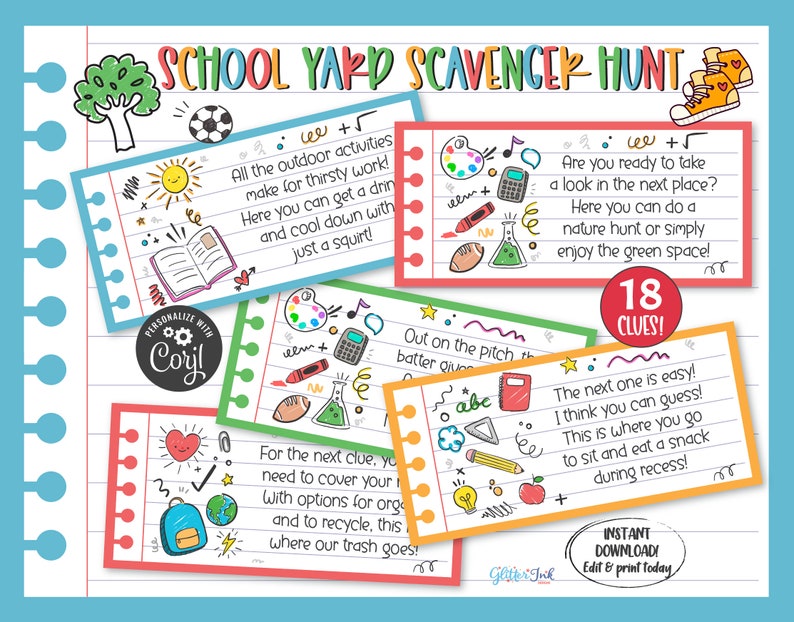 SCHOOL YARD SCAVENGER HUNT
All the outdoor activities
make for thirsty work!
Here you can get a drin
and cool down with
just a squirt!
Are you ready to take
a look in the next place?
Here you can do a
nature hunt or simply
enjoy the green space!
18
CLUES!
PERSONALIZE WITH
Corjl
Out on the pitch, th
batter gives
abc
The next one is easy!
I think you can guess!
This is where you go
to sit and eat a snack
during recess!
For the next clue, you
need to cover your n
With options for orga
and to recycle, this
where our trash goes!
INSTANT
DOWNLOAD!
Edit & print today
Glitter Ink
DESIGNS